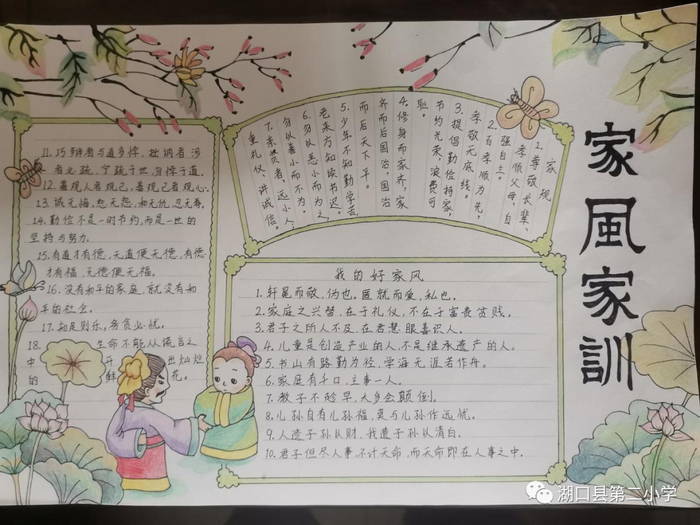 家風家訓
家规
1.尊敬长辈、
孝顺父母,自
强自主。
2.百孝顺为先,
孝敬无底线。
3.提倡勤俭持家,
节约光荣,浪费可
耻。
4.修身而家齐,家
齐而后国治,国治
而后天下平。
5.少年不知勤学苦,
老来方知读书迟。
6.勿以恶小而为之,
勿以善小而不为。
7.亲贤者,远小人,
重礼仪,讲诚信。
我的好家风
1.轩冕而敬,伪也。匿就而爱,私也。
2.家庭之兴替,在于礼仪,不在于富贵贫贱。
3.君子之所人不及,在君慧眼善识人。
4.儿童是创造产业的人,不是继承遗产的人。
5.书山有路勤为径,学海无涯若作舟。
6.家庭有千口,主事一人。
7.教子不趁早,大多会颠倒。
8.儿孙自有儿孙福,莫与儿孙作远忧。
9.人遗子孙以财,我遗子孙以清白。
10.君子但尽人事,不计天命,而天命即在人事之中。
11.巧辩者与道多悖,拙讷者
必疏,宁疏于世,勿悖于道。
12.善观人者观己,善观己者观心。
13.诚无悔,恕无怨,和无仇,忍无辱。
14.勤俭不是一时节约,而是一世的
坚持与努力。
15.有道才有德,无道便无德,有德
才有福,无德便无福。
16.没有和平的家庭,就没有和
平的社会。
17.知足则乐,务贪必忧。
18.生命不能从谎言之
中开出灿烂
的鲜花。
湖口县第二小学